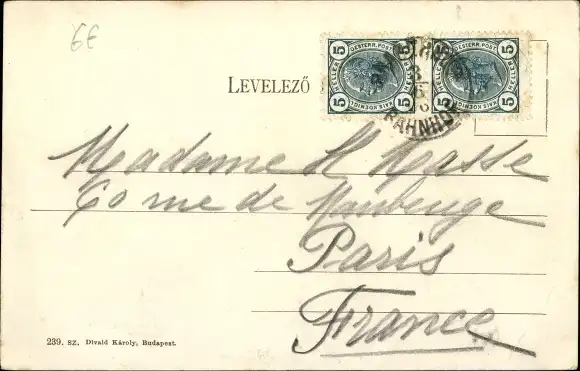 6E
LEVELEZŐ
5 OESTERR. POST. 5
HELLER HELLER
5 KAIS. KOENIGL. 5
5 OESTERR. POST. 5
HELLER HELLER
5 KAIS. KOENIGL. 5
BAHNHOF
Madame H Masse
60 rue de Maubeuge
Paris
France
239. SZ. Divald Károly, Budapest.